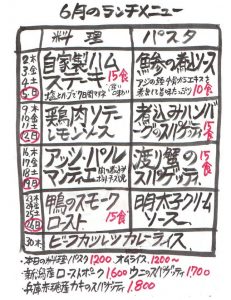 6月のランチメニュー
料理 パスタ
2木 3金 4土 5日
自家製ハムステーキ 15食
塩とハーブで7日間
鯵の煮込ソース
アジの頭や骨からエキスを煮きれいに旨味たっぷり 10食
9木 10金 11土 12日
鶏モモソテーレモンソース
煮込みハンバーグのスパゲッティ 15食
16木 17金 18土 19日
アッシ・パルマンティエ
渡り蟹のスパゲッティ 15食
23木 24金 25土 26日
鴨のスモークロースト 15食
明太子クリームソース
30木 ビーフカツカレーライス
・本日の料理 パスタ 1200 オムライス 1200~
・新潟産ローストポーク 1,600 ウニのスパゲッティ 1700
・兵庫赤穂産カキのスパゲッティ 1,800